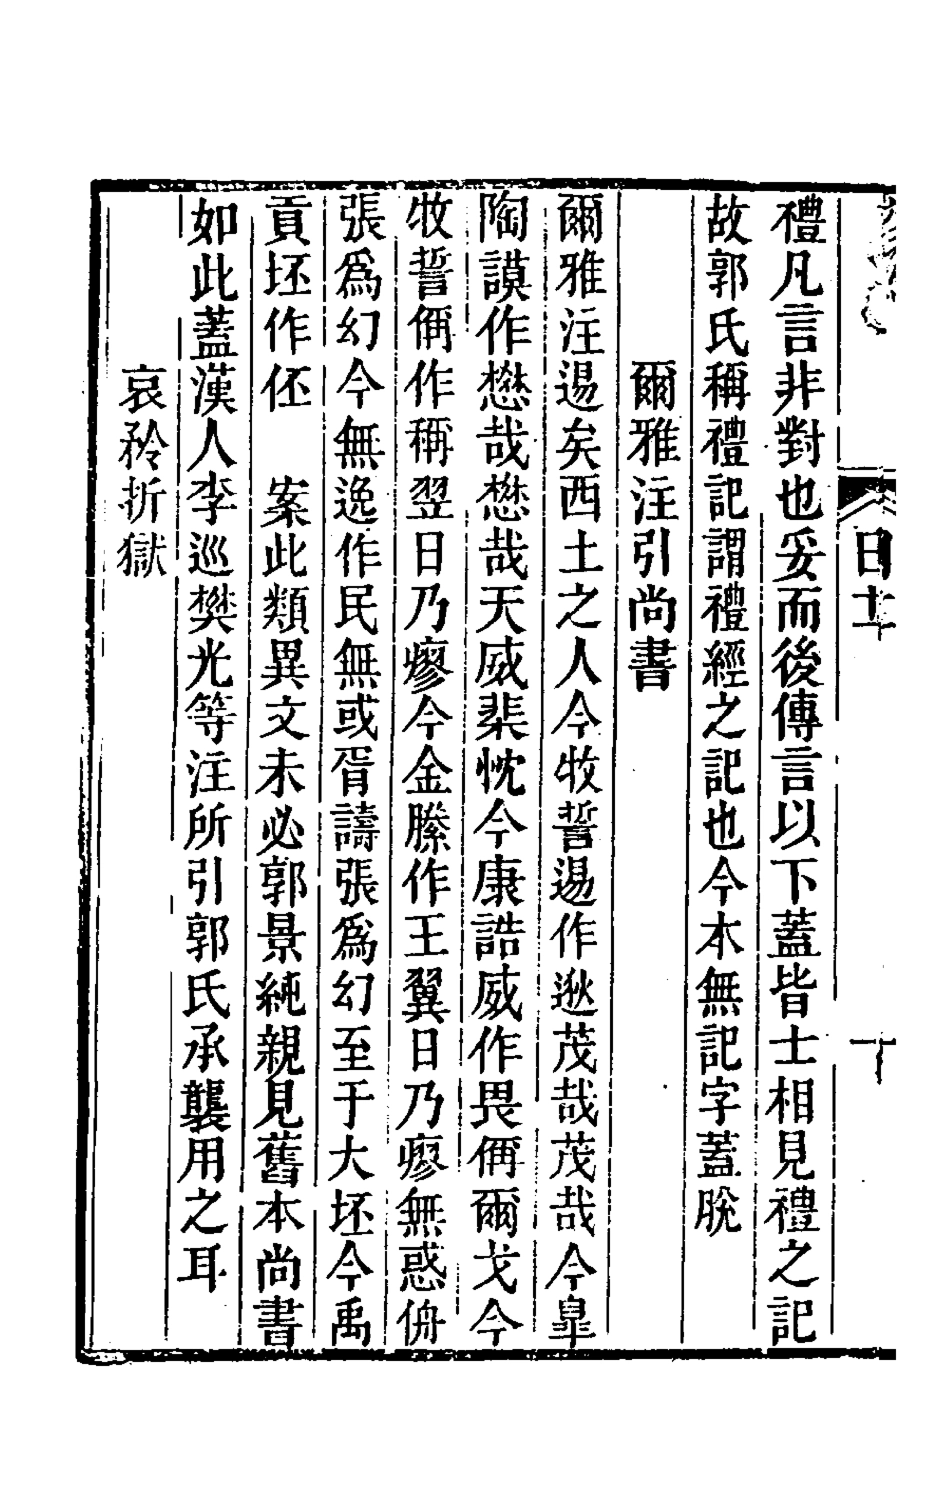 禮凡言非對也妥而後傳言以下蓋皆士相見禮之記
故郭氏稱禮記謂禮經之記也今本無記字蓋脫
爾雅注引尚書
爾雅注逷矣西土之人今牧誓逷作逖茂哉茂哉今皐
陶謨作懋哉懋哉天威棐忱今康誥威作畏偁爾戈今
牧誓偁作稱翌日乃瘳今金縢作王翼日乃瘳無惑侜
張爲幻今無逸作民無或胥譸張爲幻至于大坯今禹
貢坯作伾　案此類異文未必郭景純親見舊本尚書
如此蓋漢人李巡樊光等注所引郭氏承襲用之耳
哀矜折獄
日士
十